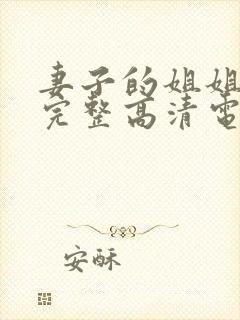 妻子的姐姐
完整高清電
安酥